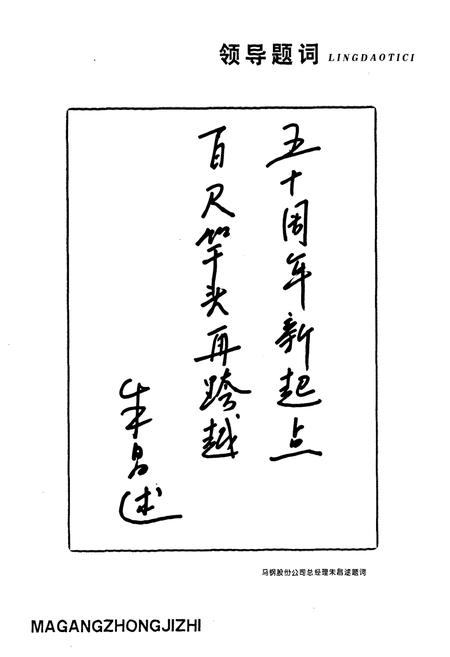 领导题词 LINGDAOTICI
五十周年新起点
百尺竿头再跨越
朱昌述
马钢股份公司总经理朱昌逑题词
MAGANGZHONGJIZHI